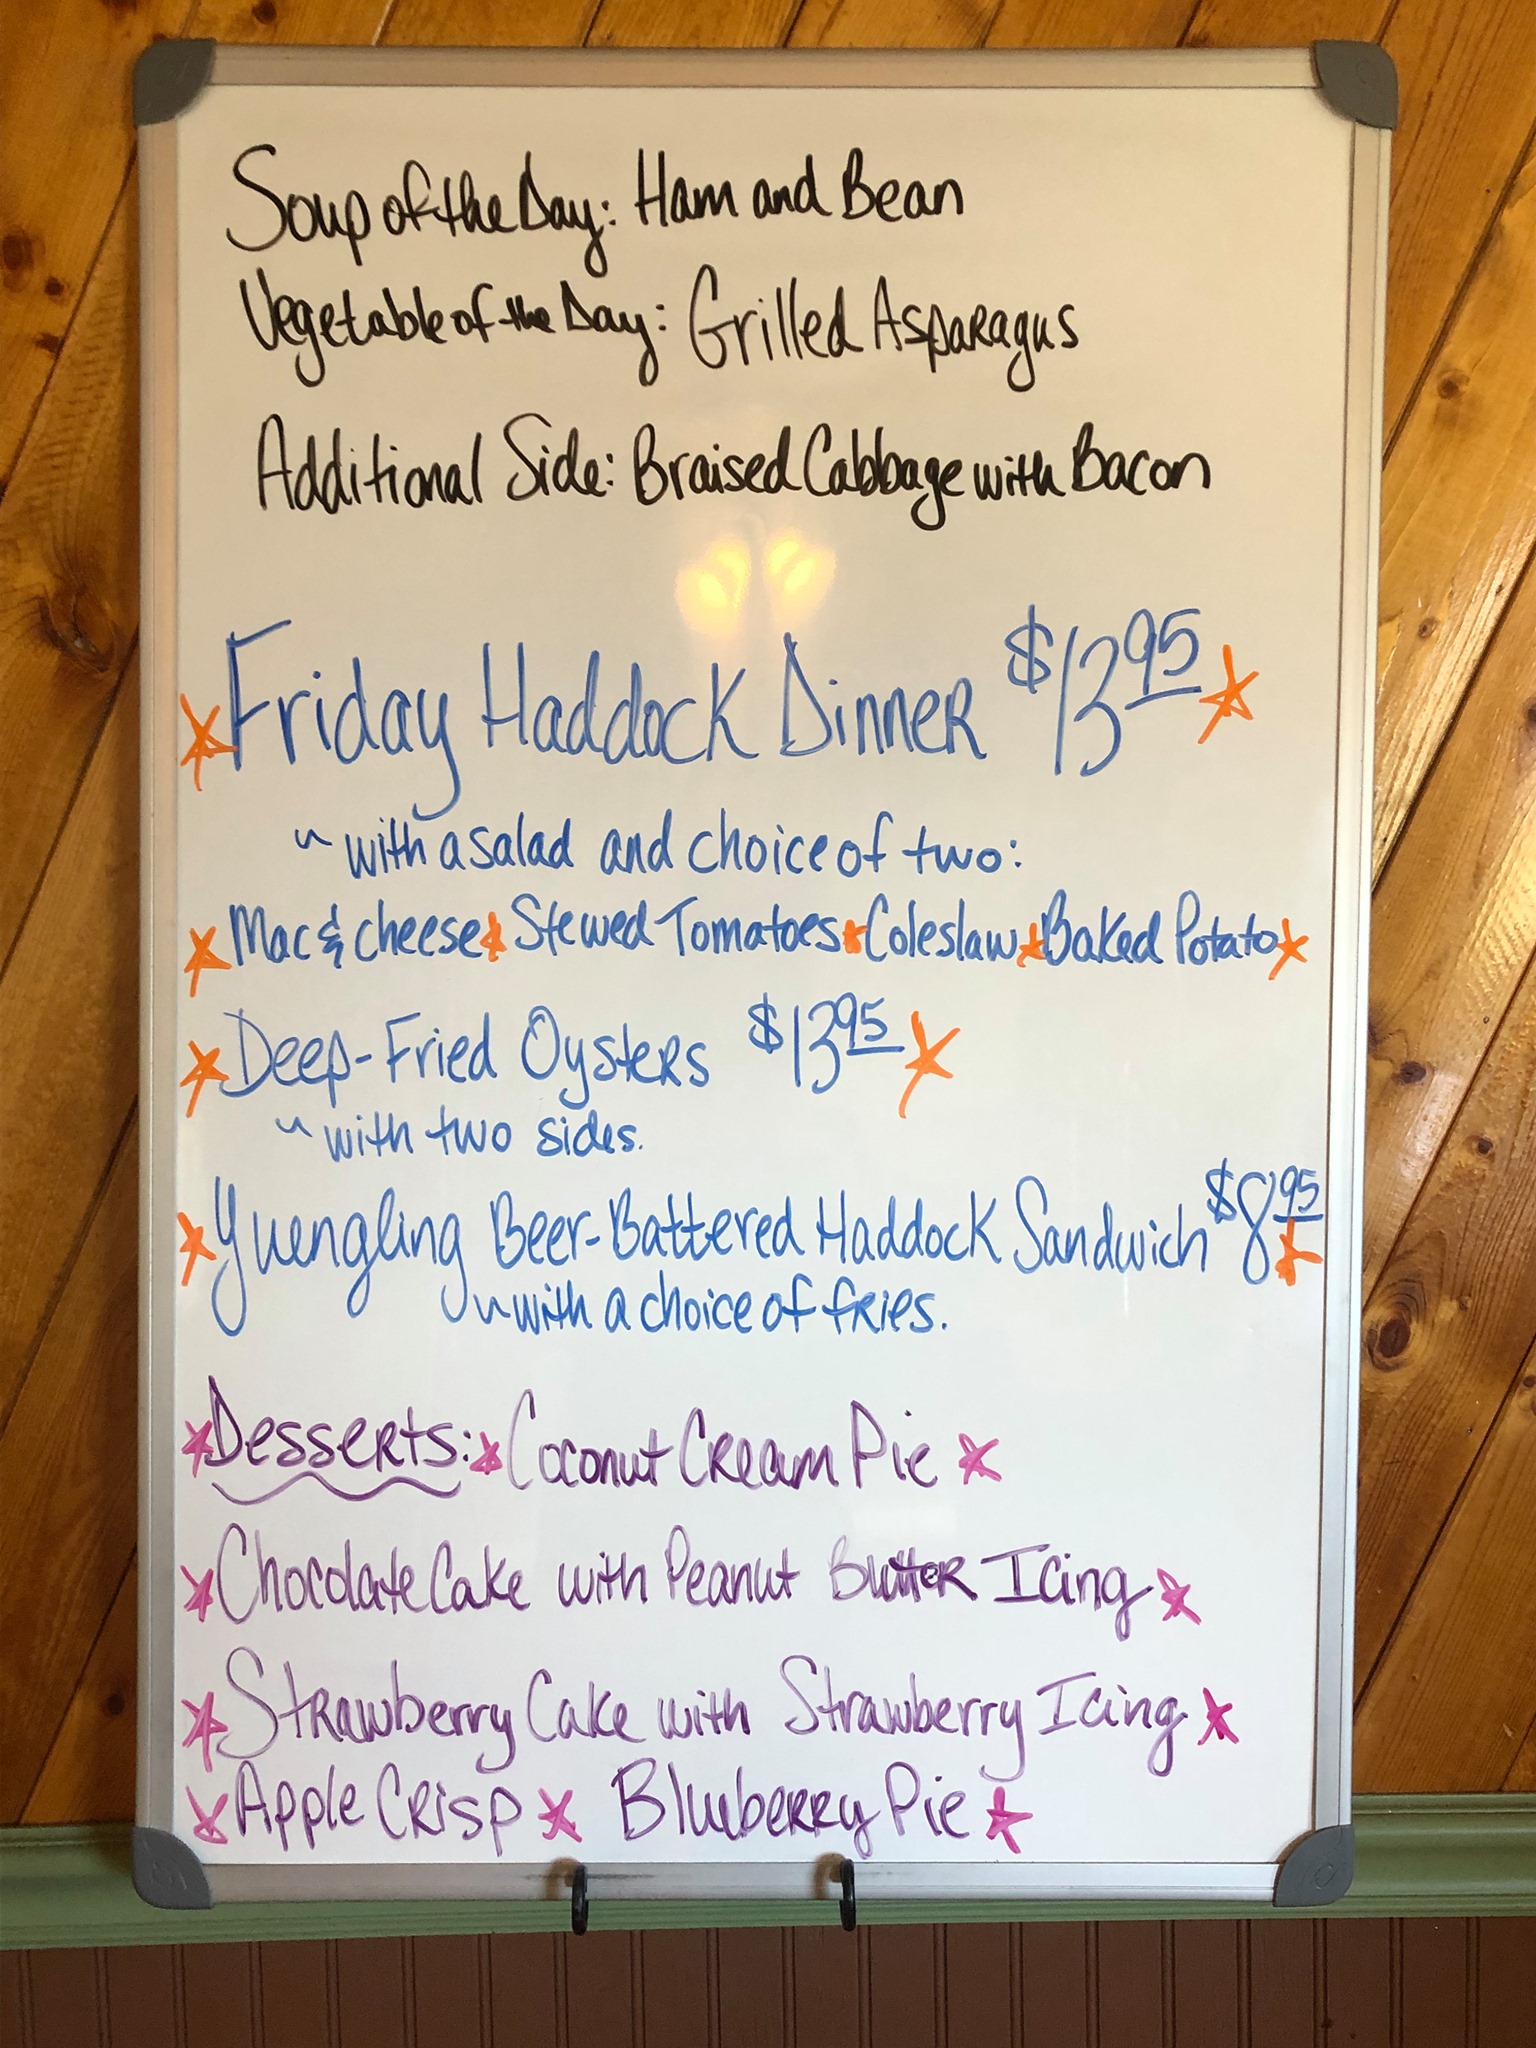 Soup of the Day: Ham and Bean
Vegetable of the Day: Grilled Asparagus
Additional Side: Braised Cabbage with Bacon
Friday Haddock Dinner $13.95
~ with a salad and choice of two:
Mac & cheese Stewed Tomatoes Coleslaw Baked Potato
Deep-Fried Oysters $13.95
~ with two sides.
Yuengling Beer-Battered Haddock Sandwich $8.95
~ with a choice of fries.
Desserts: Coconut Cream Pie
Chocolate Cake with Peanut Butter Icing
Strawberry Cake with Strawberry Icing
Apple Crisp Blueberry Pie